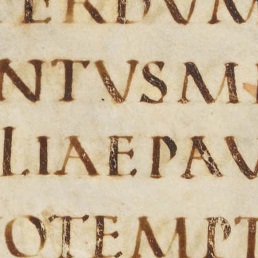 ERDVM
NTVSM
LIAEPAV
OTEMPT